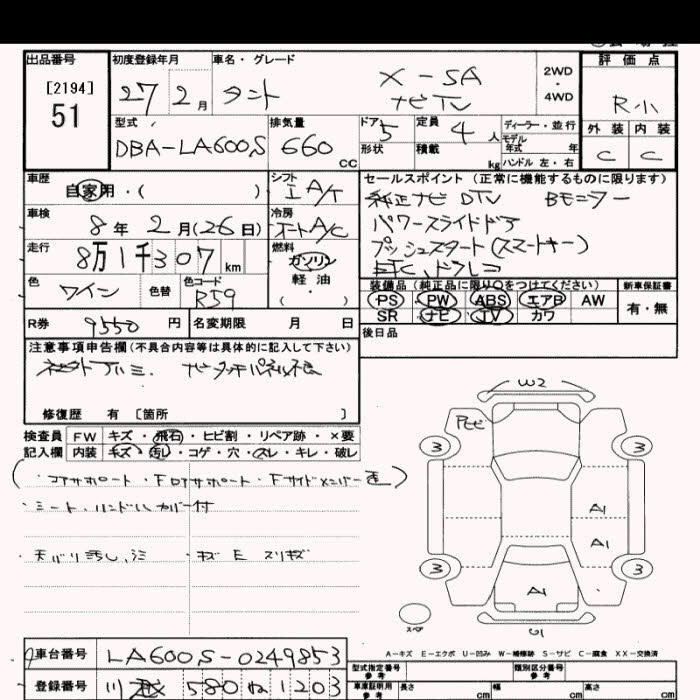 出品番号
[2194]
51
初度登録年月
27 2月
車名・グレード
タント
X-SA
ナビTV
2WD
・
4WD
評価点
R小
外装 内装
C C
型式
DBA-LA600S
排気量
660 cc
ドア 5
形状
定員 4 人
積載 kg
ディーラー・並行
モデル年式 年
ハンドル 左・右
車歴
自家用・( )
シフト
I A/T
車検
8年 2月(26日)
冷房
オートA/C
走行
8万1千307 km
燃料
ガソリン
軽油
( )
色
ワイン
色替
色コード
R59
R券 9550 円
名変期限 月 日
セールスポイント(正常に機能するものに限ります)
純正ナビ DTV Bモニター
パワースライドドア
プッシュスタート(スマートキー)
ETC、ドラレコ
装備品(純正品に限り○をつけてください)
PS PW ABS エアB AW
SR ナビ TV カワ
新車保証書
有・無
後日品
注意事項申告欄(不具合内容等は具体的に記入して下さい)
社外アルミ. ナビタッチパネル不良
修復歴 有 [箇所 ]
検査員
記入欄
FW キズ・飛石・ヒビ割・リペア跡・×要
内装 キズ・汚レ・コゲ・穴・スレ・キレ・破レ
(・コアサポート・Fロアサポート・Fサイドメンバー歪)
・シート・ハンドルカバー付
・天バリ汚レ,シミ ・キズ E スリキズ
W2
Pモビ
3
3
A1
A1
3
3
A1
スペア
U1
A-キズ E-エクボ U-凹み W-補修跡 S-サビ C-腐食 XX-交換済
車台番号
LA600S-0249853
登録番号
川越 580 ね 1203
型式指定番号
参考
類別区分番号
参考
車庫証明用
参考
長さ cm 幅 cm 高さ cm